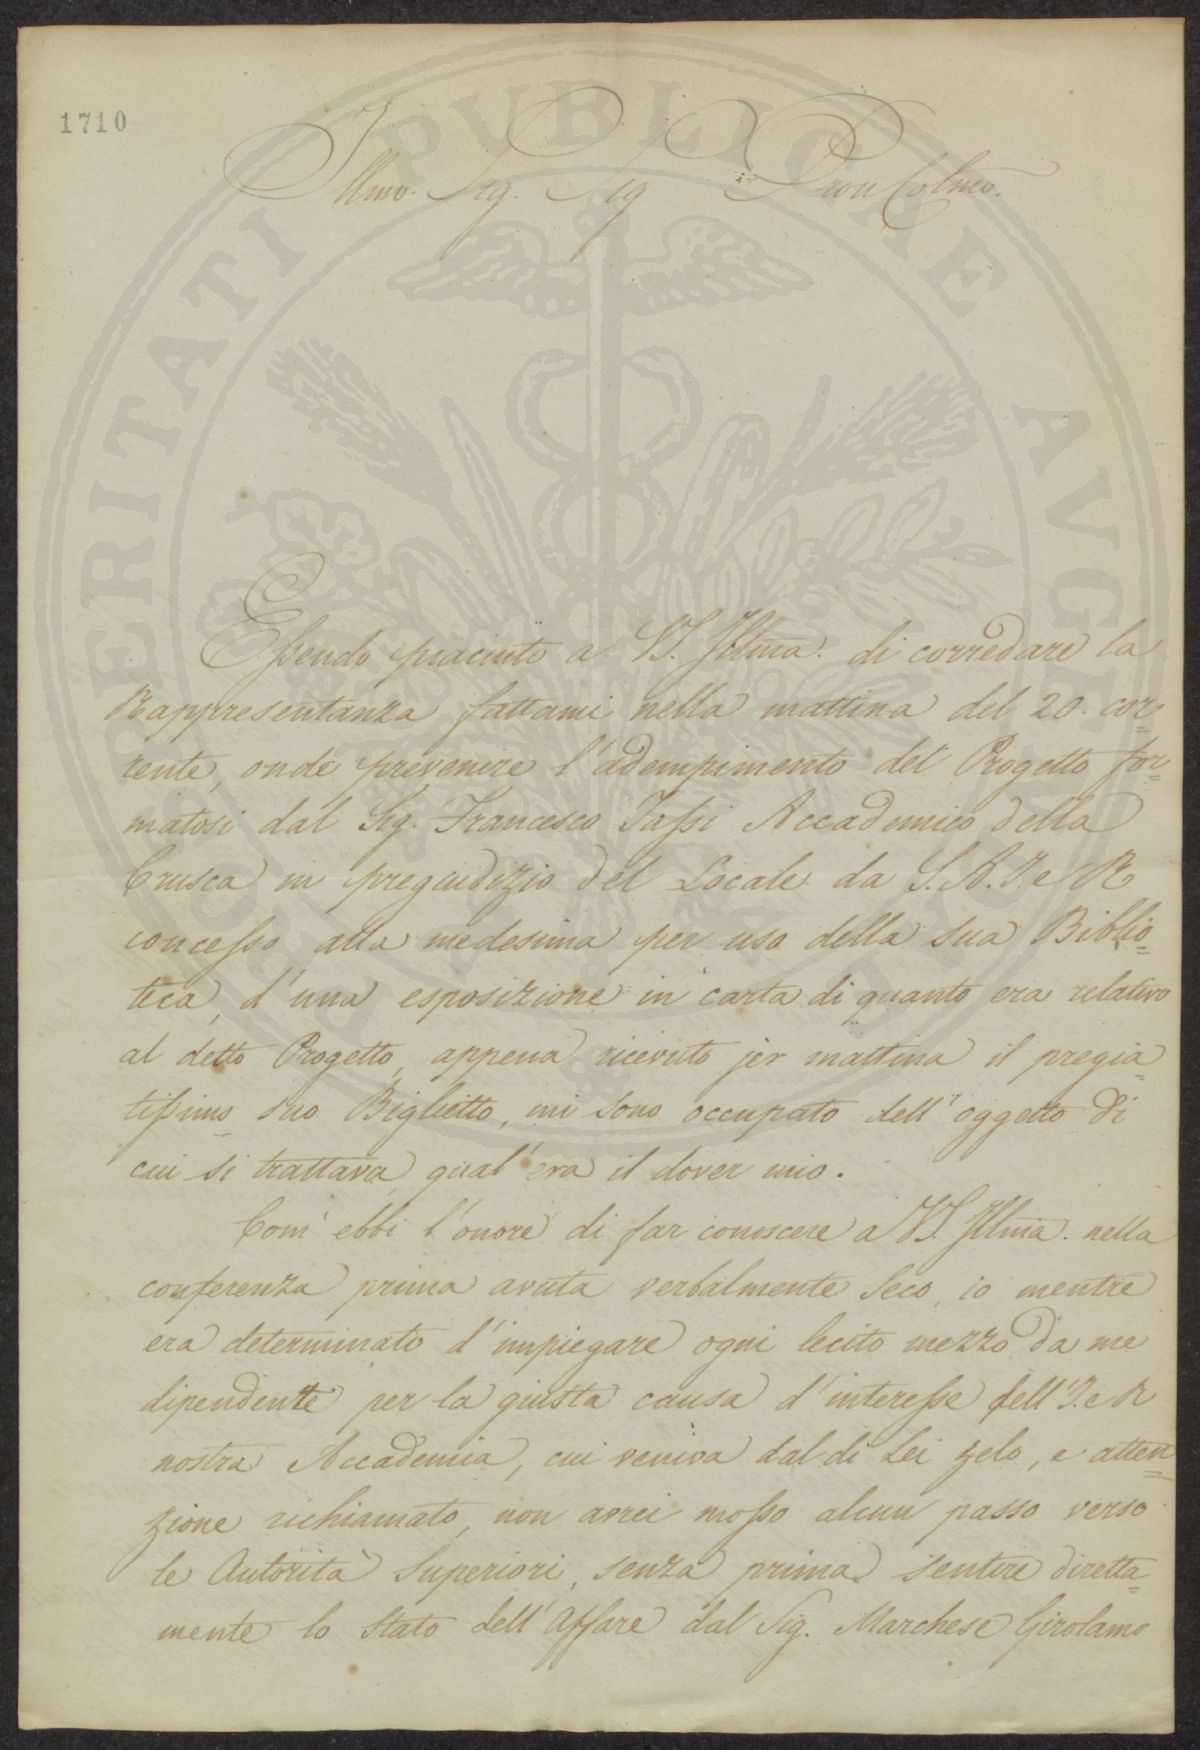 1710
Illmo. Sig. Sig Pron Colmo.
Essendo piaciuto a VS. Illma. di corredare la
Rappresentanza fattami nella mattina del 20. cor=
rente, onde prevenire l'adempimento del Progetto for=
matosi dal Sig. Francesco Tassi Accademico della
Crusca in pregiudizio del Locale da S. A. I. e R
concesso alla medesima per uso della sua Biblio=
teca, d'una esposizione in carta di quanto era relativo
al detto Progetto, appena ricevuto jer mattina il pregia=
tissimo suo Biglietto, mi sono occupato dell'oggetto di
cui si trattava, qual'era il dover mio.
Com'ebbi l'onore di far conoscere a VS. Illma. nella
conferenza prima avuta verbalmente seco, io mentre
era determinato d'impiegare ogni lecito mezzo da me
dipendente per la giusta causa d'interesse dell'I. e R
nostra Accademia, cui veniva dal di Lei zelo, e atten=
zione richiamato, non avrei mosso alcun passo verso
le Autorità Superiori, senza prima sentire diretta=
mente lo Stato dell'Affare dal Sig. Marchese Girolamo
PROSPERITATI PVBLICAE AVGENDAE